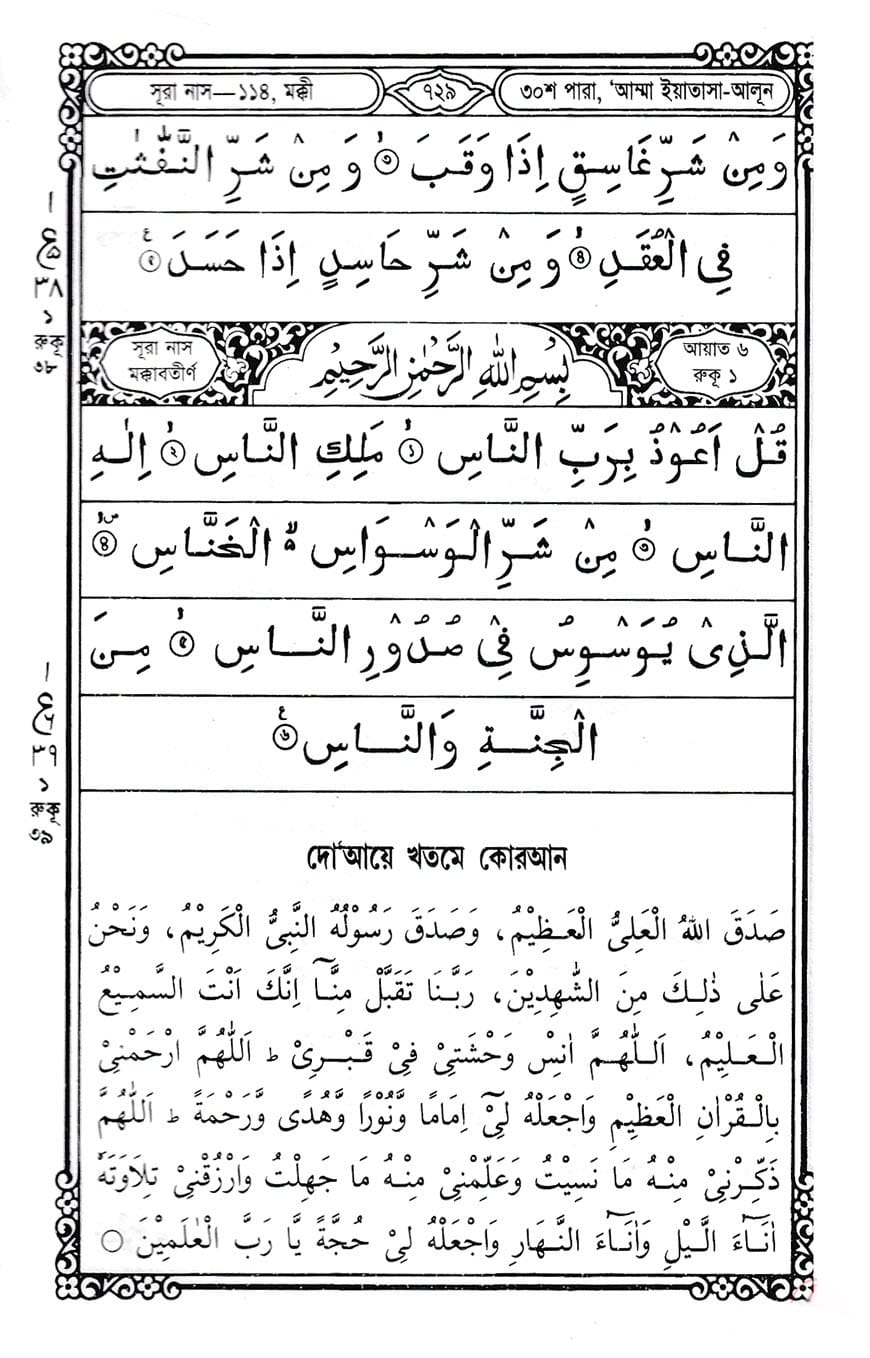 সূরা নাস—১১৪, মক্কী
৭২৯
৩০শ পারা, 'আম্মা ইয়াতাসা-আলূন
وَمِنْ شَرِّ غَاسِقٍ اِذَا وَقَبَ ۙ৩ وَمِنْ شَرِّ النَّفّٰثٰتِ
فِى الْعُقَدِ ۙ৪ وَمِنْ شَرِّ حَاسِدٍ اِذَا حَسَدَ ৫
ع
৫
٣٨
১
রুকূ
৩৮
সূরা নাস
মক্কাবতীর্ণ
بِسْمِ اللهِ الرَّحْمٰنِ الرَّحِيْمِ
আয়াত ৬
রুকূ ১
قُلْ اَعُوْذُ بِرَبِّ النَّاسِ ۙ১ مَلِكِ النَّاسِ ۙ২ اِلٰهِ
النَّاسِ ۙ৩ مِنْ شَرِّ الْوَسْوَاسِ ۬ۙ الْخَنَّاسِ ৪
الَّذِىْ يُوَسْوِسُ فِىْ صُدُوْرِ النَّاسِ ۙ৫ مِنَ
الْجِنَّةِ وَالنَّاسِ ৬
ع
৬
٣٩
১
রুকূ
৩৯
দো'আয়ে খতমে কোরআন
صَدَقَ اللهُ الْعَلِىُّ الْعَظِيْمُ، وَصَدَقَ رَسُوْلُهُ النَّبِىُّ الْكَرِيْمُ، وَنَحْنُ
عَلٰى ذٰلِكَ مِنَ الشّٰهِدِيْنَ، رَبَّنَا تَقَبَّلْ مِنَّآ اِنَّكَ اَنْتَ السَّمِيْعُ
الْعَلِيْمُ، اَللّٰهُمَّ اٰنِسْ وَحْشَتِىْ فِىْ قَبْرِىْ ط اَللّٰهُمَّ ارْحَمْنِىْ
بِالْقُرْاٰنِ الْعَظِيْمِ وَاجْعَلْهُ لِىْٓ اِمَامًا وَّنُوْرًا وَّهُدًى وَّرَحْمَةً ط اَللّٰهُمَّ
ذَكِّرْنِىْ مِنْهُ مَا نَسِيْتُ وَعَلِّمْنِىْ مِنْهُ مَا جَهِلْتُ وَارْزُقْنِىْ تِلَاوَتَهٗ
اٰنَآءَ الَّيْلِ وَاٰنَآءَ النَّهَارِ وَاجْعَلْهُ لِىْ حُجَّةً يَّا رَبَّ الْعٰلَمِيْنَ ○